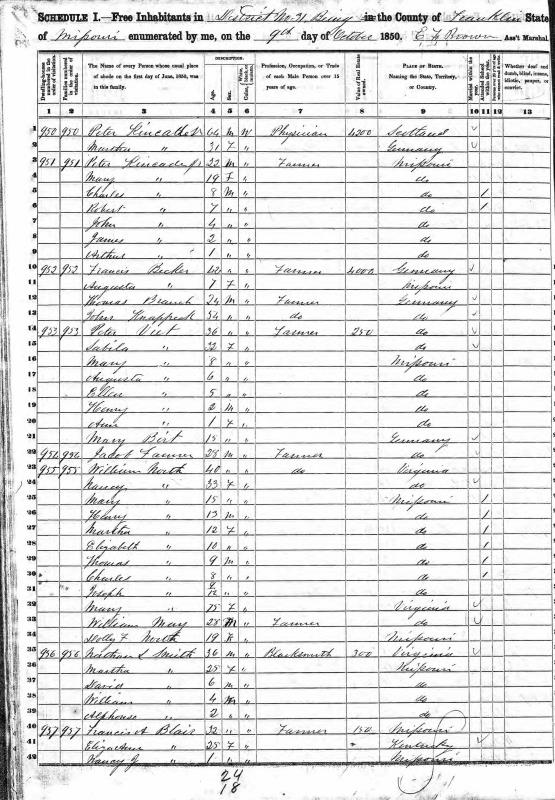 SCHEDULE I.—Free Inhabitants in District No. 31 Being in the County of Franklin State
of Missouri enumerated by me, on the 9th day of October 1850. E F Brown Ass't Marshal.
Dwelling-houses numbered in the order of visitation.
Families numbered in the order of visitation.
The Name of every Person whose usual place of abode on the first day of June, 1850, was in this family.
DESCRIPTION.
Age.
Sex.
Profession, Occupation, or Trade of each Male Person over 15 years of age.
Value of Real Estate owned.
PLACE OF BIRTH. Naming the State, Territory, or Country.
Married within the year.
Attended School within the year.
Whether deaf and dumb, blind, insane, idiotic, pauper, or convict.
1 2 3 4 5 6 7 8 9 10 11 12 13
1 950 950 Peter Kincade Sr 64 M W Physician 4200 Scotland
2 Martha " 31 F " Germany
3 951 951 Peter Kincade Jr 22 M " Farmer Missouri
4 Mary " 19 F " do
5 Charles " 8 M " do 1
6 Robert " 7 " " do 1
7 John " 4 " " do
8 James " 2 " " do
9 Arthur " 1 " " do
10 952 952 Francis Becker 42 " " Farmer 4000 Germany
11 Augusta " 7 F " Missouri
12 Thomas Branch 24 M " Farmer Germany
13 John Knappreak 54 " " do do
14 953 953 Peter Viet 36 " " Farmer 250 do
15 Sabila " 32 F " do
16 Mary " 8 " " Missouri
17 Augusta " 6 " " do
18 Ellen " 5 " " do
19 Henry " 2 M " do
20 Ann " 1 F " do
21 Mary Birt 15 " " Germany
22 954 954 Jacob 28 M " Farmer do
23 955 955 William North 40 " " do Virginia
24 Nancy " 33 F " do
25 Mary " 15 " " Missouri 1
26 Henry " 13 M " do 1
27 Martha " 12 F " do 1
28 Elizabeth " 10 " " do 1
29 Thomas " 9 M " do 1
30 Charles " 8 " " do 1
31 Joseph " " " do
32 Mary " 75 F " Virginia
33 William May 28 M " Farmer do
34 Dolly F North 19 F " Missouri
35 956 956 Nathan S Smith 36 M " Blacksmith 300 Virginia
36 Martha " 25 F " Missouri
37 David " 6 M " do
38 William " 4 M " do
39 Alphonse " 2 " " do
40 957 957 Francis A Blair 32 " " Farmer 150 Missouri
41 Eliza Ann " 25 F " Kentucky
42 Nancy J " 1 " " Missouri
24
18